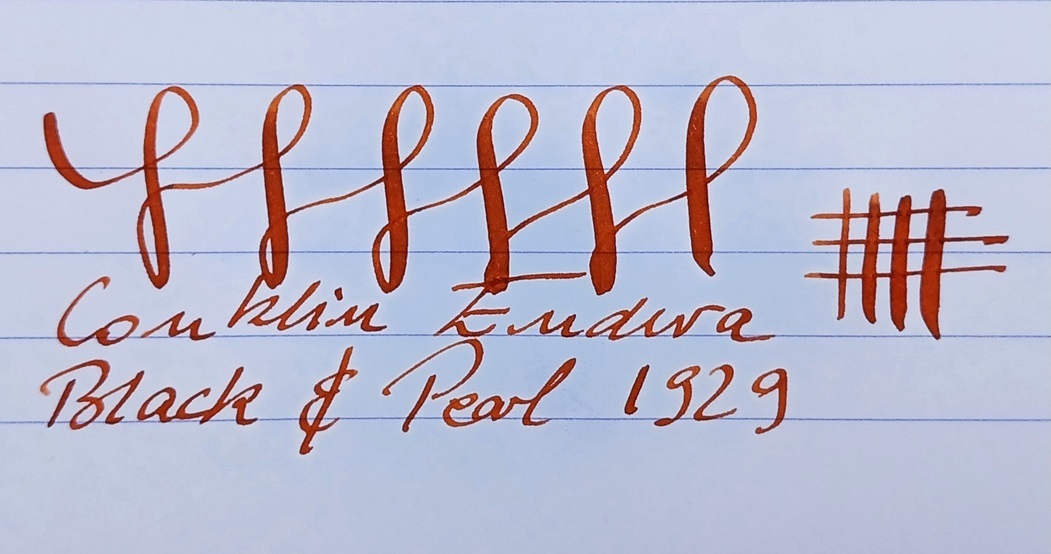 Conklin Endura
Black & Pearl 1929